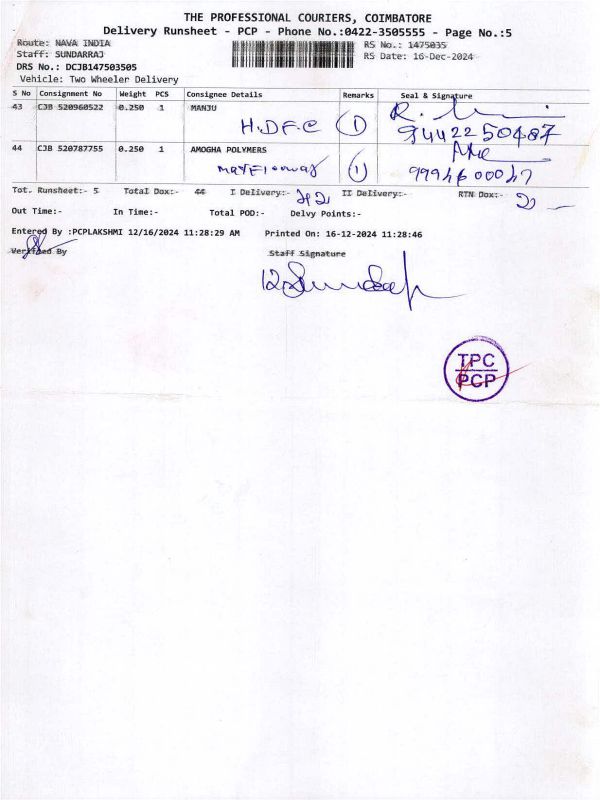 THE PROFESSIONAL COURIERS, COIMBATORE
Delivery Runsheet - PCP - Phone No.:0422-3505555 - Page No.:5
Route: NAVA INDIA RS No.: 1475035
Staff: SUNDARRAJ RS Date: 16-Dec-2024
DRS No.: DCJB147503505
Vehicle: Two Wheeler Delivery
S No Consignment No Weight PCS Consignee Details Remarks Seal & Signature
43 CJB 520960522 0.250 1 MANJU
H.D.F.C 1 94422 50487
44 CJB 520787755 0.250 1 AMOGHA POLYMERS
1
Tot. Runsheet:- 5 Total Dox:- 44 I Delivery:- 42 II Delivery:- RTN Dox:- 2
Out Time:- In Time:- Total POD:- Delvy Points:-
Entered By :PCPLAKSHMI 12/16/2024 11:28:29 AM Printed On: 16-12-2024 11:28:46
Verified By Staff Signature
TPC
PCP